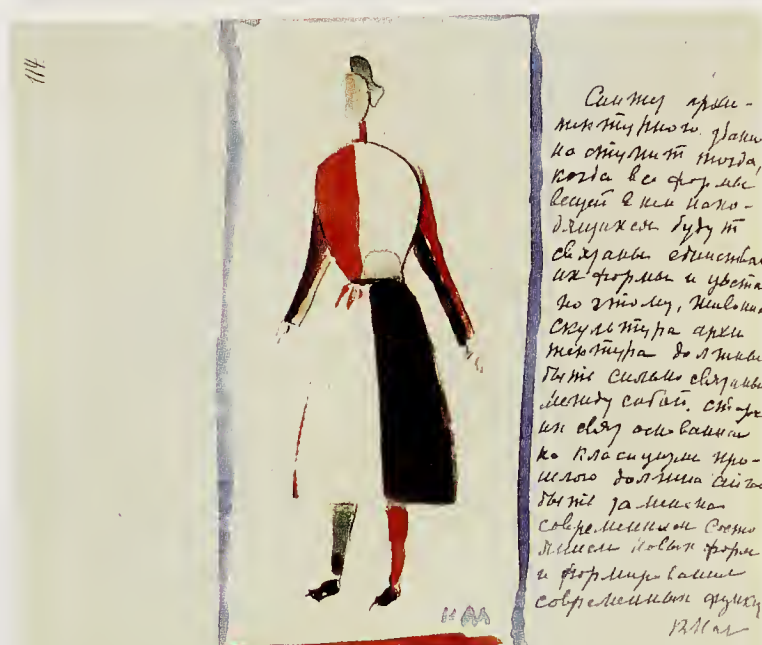 114.
архи-
тектурного здани
наступит тогда,
когда все формы
вещей в нем нахо-
дящихся будут
связаны единства
их формы и цвета
по этому,
скульптура архи
тектура должны
быть сильно связаны
между собой.
их связ основанная
на класицизме про-
шлого должна
быть заменена
современным состо
янием новых форм
и формирования
современных функц
К Мал
КМ